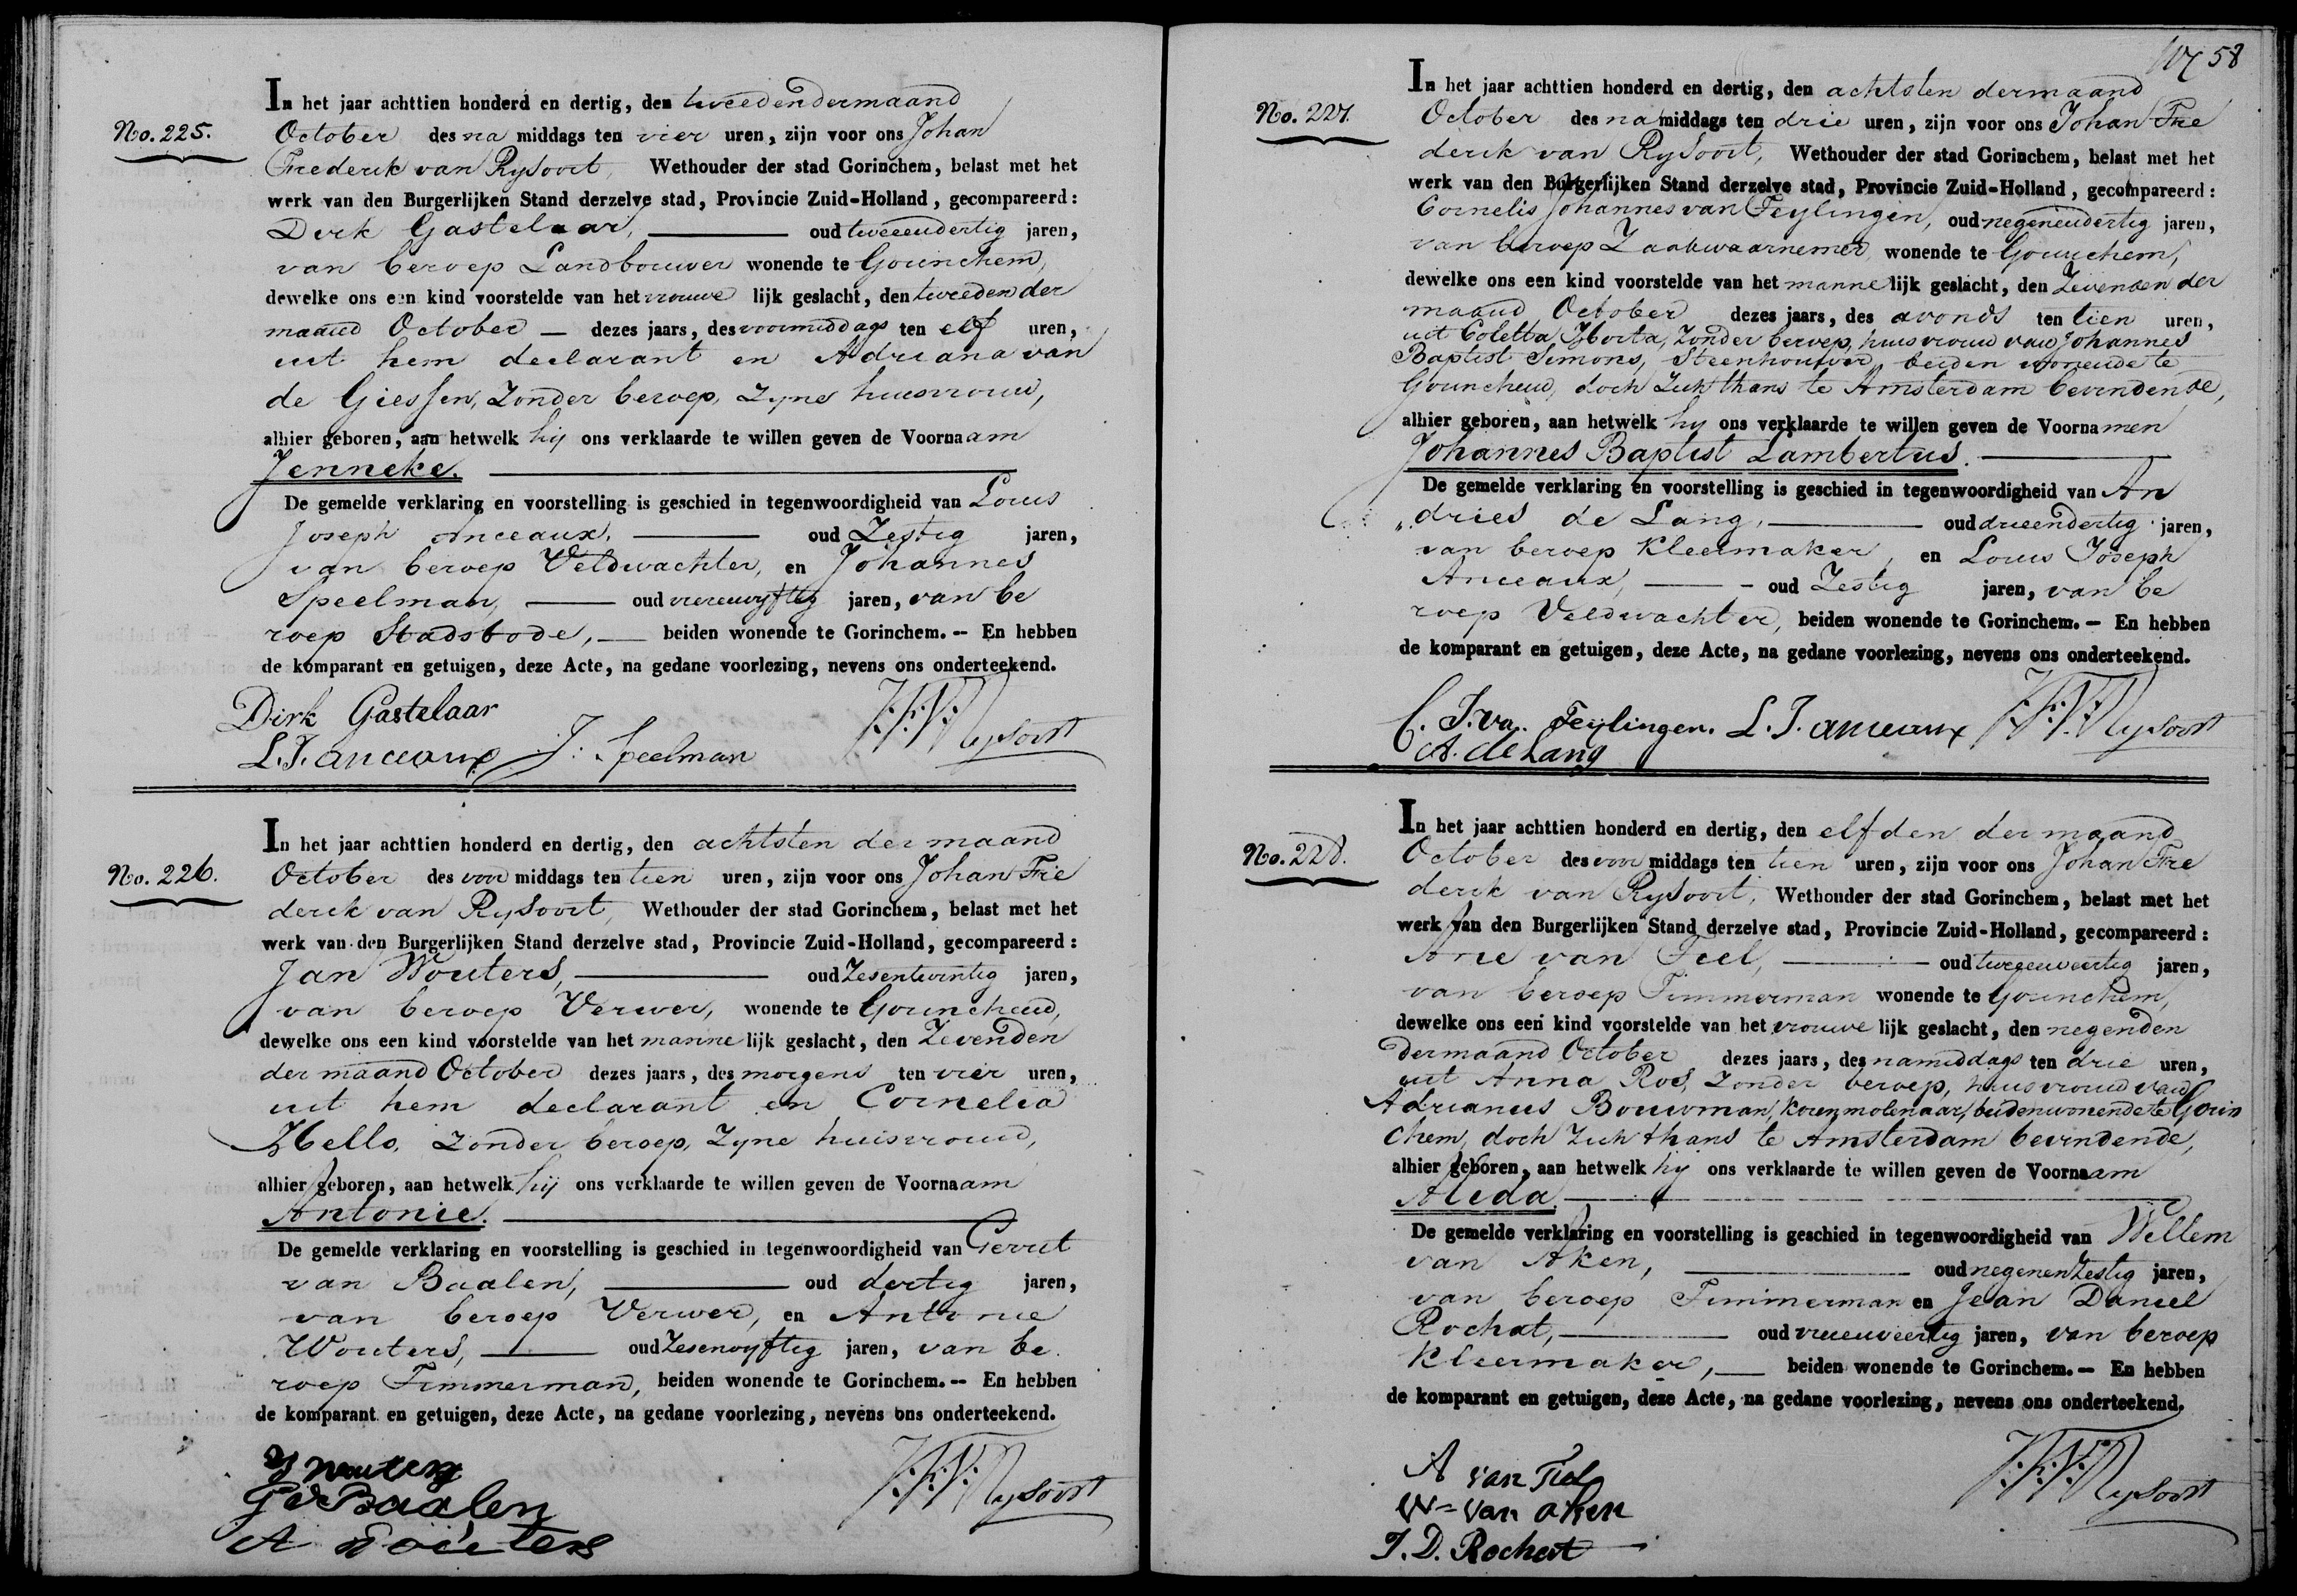 No. 225.
In het jaar achttien honderd en dertig, den tweeden der maand
October des na middags ten vier uren, zijn voor ons Johan
Frederik van Rysoort, Wethouder der stad Gorinchem, belast met het
werk van den Burgerlijken Stand derzelve stad, Provincie Zuid-Holland, gecompareerd:
Dirk Gastelaar, oud tweeendertig jaren,
van beroep Landbouwer wonende te Gorinchem,
dewelke ons een kind voorstelde van het vrouwe lijk geslacht, den tweeden der
maand October — dezes jaars, des voormiddags ten elf uren,
uit hem declarant en Adriana van
de Giessen, Zonder beroep, Zyne huisvrouw,
alhier geboren, aan hetwelk hij ons verklaarde te willen geven de Voornaam
Jenneke.
De gemelde verklaring en voorstelling is geschied in tegenwoordigheid van Louis
Joseph Anceaux, oud Zestig jaren,
van beroep Veldwachter, en Johannes
Speelman, oud vierenvyftig jaren, van be
roep Stadsbode, — beiden wonende te Gorinchem. -- En hebben
de komparant en getuigen, deze Acte, na gedane voorlezing, nevens ons onderteekend.
Dirk Gastelaar
L. J. anceaux J: Speelman J: F: V: Rysoort
No. 226.
In het jaar achttien honderd en dertig, den achtsten der maand
October des voor middags ten tien uren, zijn voor ons Johan Fre
derik van Rysoort, Wethouder der stad Gorinchem, belast met het
werk van den Burgerlijken Stand derzelve stad, Provincie Zuid-Holland, gecompareerd:
Jan Wouters, oud Zesentwintig jaren,
van beroep Verwer, wonende te Gorinchem,
dewelke ons een kind voorstelde van het manne lijk geslacht, den Zevenden
der maand October dezes jaars, des morgens ten vier uren,
uit hem declarant en Cornelia
Hello, Zonder beroep, Zyne huisvrouw,
alhier geboren, aan hetwelk hij ons verklaarde te willen geven de Voornaam
Antonie.
De gemelde verklaring en voorstelling is geschied in tegenwoordigheid van Gerrit
van Baalen, oud dertig jaren,
van beroep Verwer, en Antonie
Wouters, oud Zesenvyftig jaren, van be
roep Timmerman, beiden wonende te Gorinchem. -- En hebben
de komparant en getuigen, deze Acte, na gedane voorlezing, nevens ons onderteekend.
J Wouters
G v Baalen
A Wouters J: F: V: Rysoort
58
No. 227.
In het jaar achttien honderd en dertig, den achtsten der maand
October des na middags ten drie uren, zijn voor ons Johan Fre
derik van Rysoort, Wethouder der stad Gorinchem, belast met het
werk van den Burgerlijken Stand derzelve stad, Provincie Zuid-Holland, gecompareerd:
Cornelis Johannes van Teylingen, oud negenendertig jaren,
van beroep Zaakwaarnemer wonende te Gorinchem,
dewelke ons een kind voorstelde van het manne lijk geslacht, den Zevenden der
maand October dezes jaars, des avonds ten tien uren,
uit Coletta Horta, Zonder beroep, huisvrouw van Johannes
Baptist Simons, Steenhouwer, beiden wonende te
Gorinchem, doch Zich thans te Amsterdam bevindende,
alhier geboren, aan hetwelk hij ons verklaarde te willen geven de Voornamen
Johannes Baptist Lambertus.
De gemelde verklaring en voorstelling is geschied in tegenwoordigheid van An
„dries de Lang, oud drieendertig jaren,
van beroep Kleermaker, en Louis Joseph
Anceaux, — oud Zestig jaren, van be
roep Veldwachter, beiden wonende te Gorinchem. — En hebben
de komparant en getuigen, deze Acte, na gedane voorlezing, nevens ons onderteekend.
C. J. van Teylingen. L. J. anceaux J: F: V: Rysoort
A. de Lang
No. 228.
In het jaar achttien honderd en dertig, den elfden der maand
October des voor middags ten tien uren, zijn voor ons Johan Fre
derik van Rysoort, Wethouder der stad Gorinchem, belast met het
werk van den Burgerlijken Stand derzelve stad, Provincie Zuid-Holland, gecompareerd:
Arie van Tiel, oud tweeenveertig jaren,
van beroep Timmerman wonende te Gorinchem,
dewelke ons een kind voorstelde van het vrouwe lijk geslacht, den negenden
der maand October dezes jaars, des namiddags ten drie uren,
uit Anna Ros, Zonder beroep, huisvrouw van
Adrianus Bouwman, Korenmolenaar, beiden wonende te Gorin
chem, doch Zich thans te Amsterdam bevindende,
alhier geboren, aan hetwelk hij ons verklaarde te willen geven de Voornaam
Alida.
De gemelde verklaring en voorstelling is geschied in tegenwoordigheid van Willem
van Aken, oud negenenZestig jaren,
van beroep Timmerman en Jean Daniel
Rochat, oud vierenveertig jaren, van beroep
Kleermaker, — beiden wonende te Gorinchem. — En hebben
de komparant en getuigen, deze Acte, na gedane voorlezing, nevens ons onderteekend.
A van Tiel
W = van aken
J. D. Rochat J: F: V: Rysoort